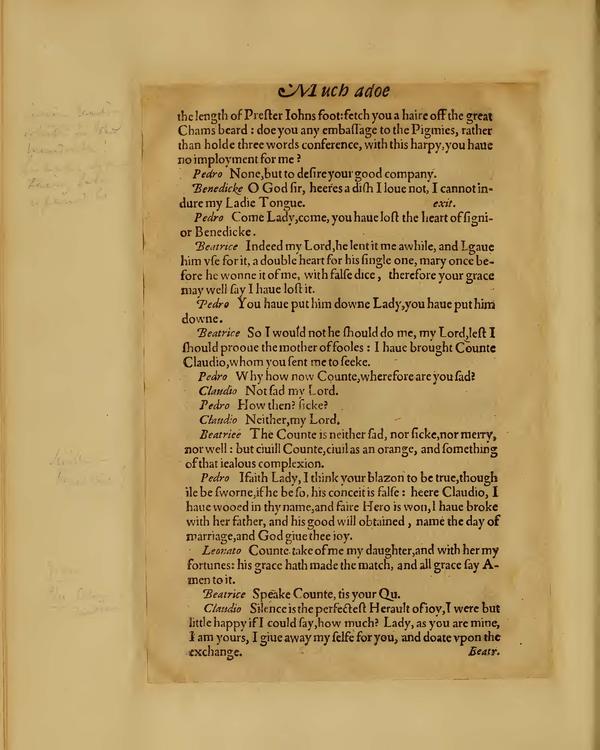 Much adoe
the length of Preſter Iohns foot: fetch you a haire off the great
Chams beard : doe you any embaſſage to the Pigmies, rather
than holde three words conference, with this harpy, you haue
no imployment for me ?
Pedro None, but to deſire your good company.
Benedicke O God ſir, heeres a diſh I loue not, I cannot in-
dure my Ladie Tongue. exit.
Pedro Come Lady, come, you haue loſt the heart of ſigni-
or Benedicke.
Beatrice Indeed my Lord, he lent it me awhile, and I gaue
him vſe for it, a double heart for his ſingle one, mary once be-
fore he wonne it of me, with falſe dice , therefore your grace
may well ſay I haue loſt it.
Pedro You haue put him downe Lady, you haue put him
downe.
Beatrice So I would not he ſhould do me, my Lord, leſt I
ſhould prooue the mother of fooles : I haue brought Counte
Claudio, whom you ſent me to ſeeke.
Pedro Why how now Counte, wherefore are you ſad?
Claudio Not ſad my Lord.
Pedro How then? ſicke?
Claudio Neither, my Lord.
Beatrice The Counte is neither ſad, nor ſicke, nor merry,
nor well : but ciuill Counte, ciuil as an orange, and ſomething
of that iealous complexion.
Pedro Ifaith Lady, I think your blazon to be true, though
ile be ſworne, if he be ſo, his conceit is falſe : heere Claudio, I
haue wooed in thy name, and faire Hero is won, I haue broke
with her father, and his good will obtained , name the day of
marriage, and God giue thee ioy.
Leonato Counte take of me my daughter, and with her my
fortunes: his grace hath made the match, and all grace ſay A-
men to it.
Beatrice Speake Counte, tis your Qu.
Claudio Silence is the perfecteſt Herault of ioy, I were but
little happy if I could ſay, how much? Lady, as you are mine,
I am yours, I giue away my ſelfe for you, and doate vpon the
exchange. Beatr.